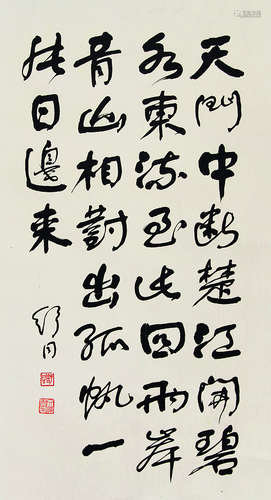 天門中断楚江開碧
水東流至此回兩岸
青山相對出孤帆一
片日邊来
舒同